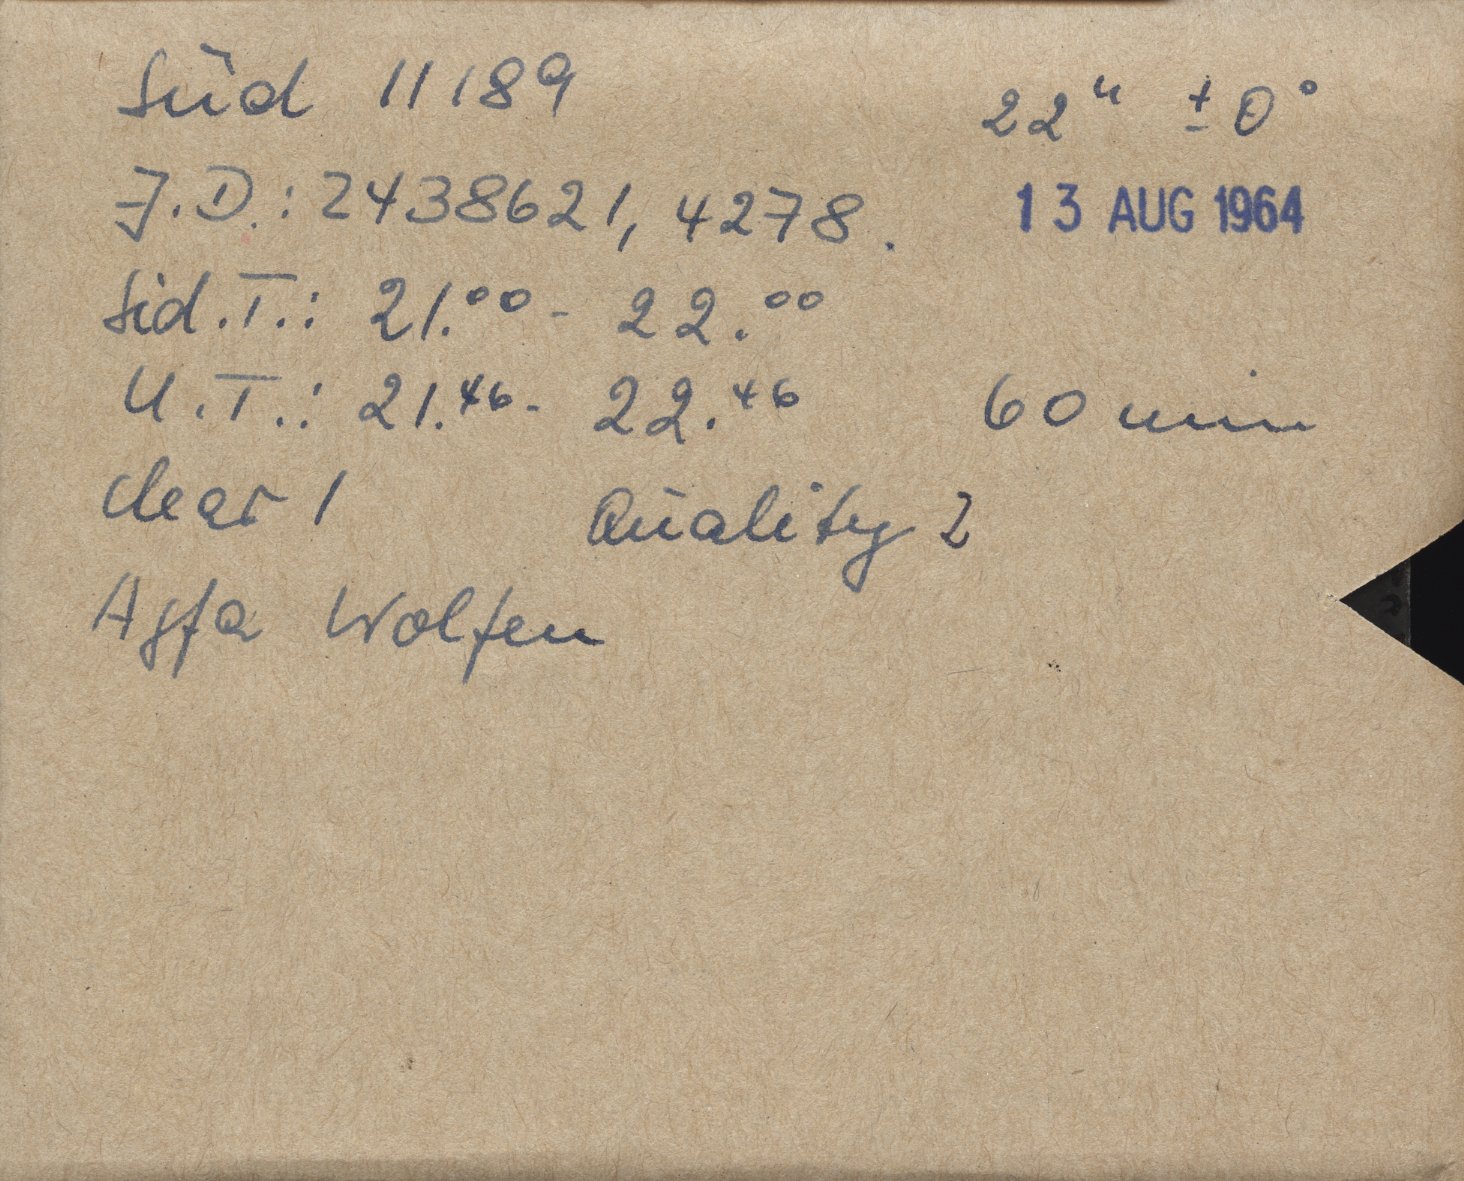 Süd 11189 22ʰ ± 0°
J.D.: 2438621,4278. 13 AUG 1964
Sid.T.: 21.⁰⁰ - 22.⁰⁰
U.T.: 21.⁴⁶ - 22.⁴⁶ 60 min
clear 1 Quality 2
Agfa Wolfen